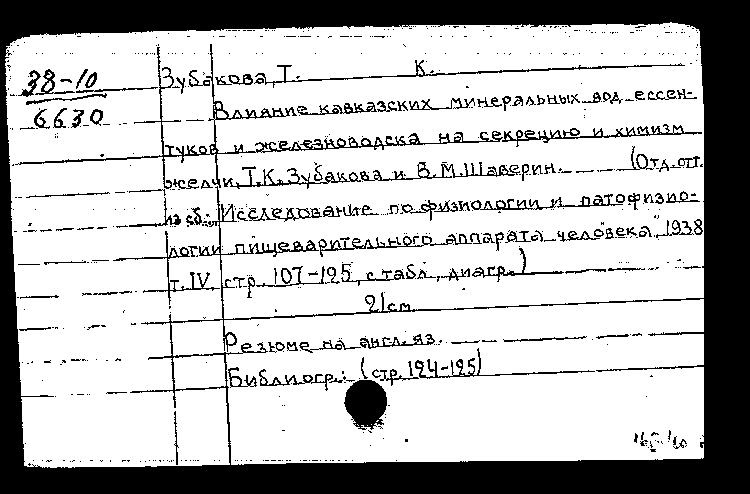 38-10
6630
Зубакова, Т. К.
Влияние кавказских минеральных вод ессен-
туков и железноводска на секрецию и химизм
желчи. Т.К. Зубакова и В.М. Шаверин. (Отд. отт.
из сб.: "Исследование по физиологии и патофизио-
логии пищеварительного аппарата человека", 1938
т. IV, стр. 107-125, с табл., диагр.)
21 см.
Резюме на англ. яз.
Библиогр.: (стр. 124-125)